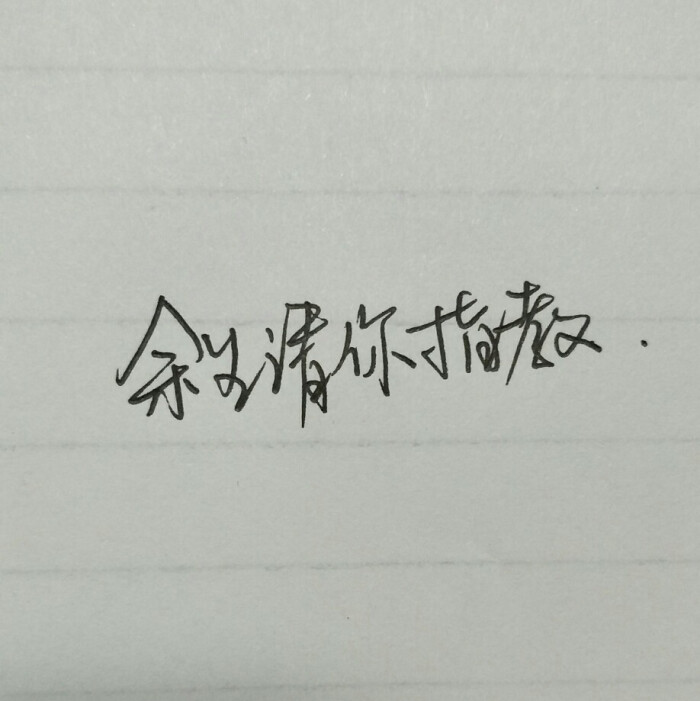 余生请你指教.